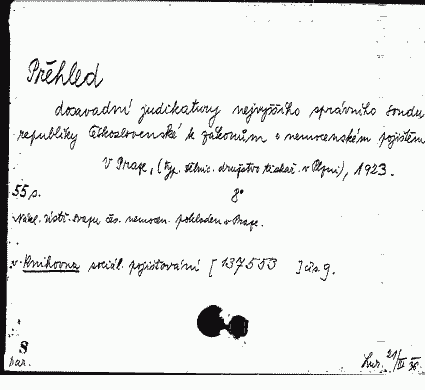 Přehled
dosavadní judikatury nejvyššího správního soudu
republiky Československé k zákonům o nemocenském pojištění
V Praze, (typ. dělnic. družstvo tiskař. v Plzni), 1923.
55 s. 8°
Nákl. Ústř. svazu čes. nemocen. pokladen v Praze.
v Knihovna sociál. pojišťování [137553 ] čís. 9.
8
har. 21/III 36